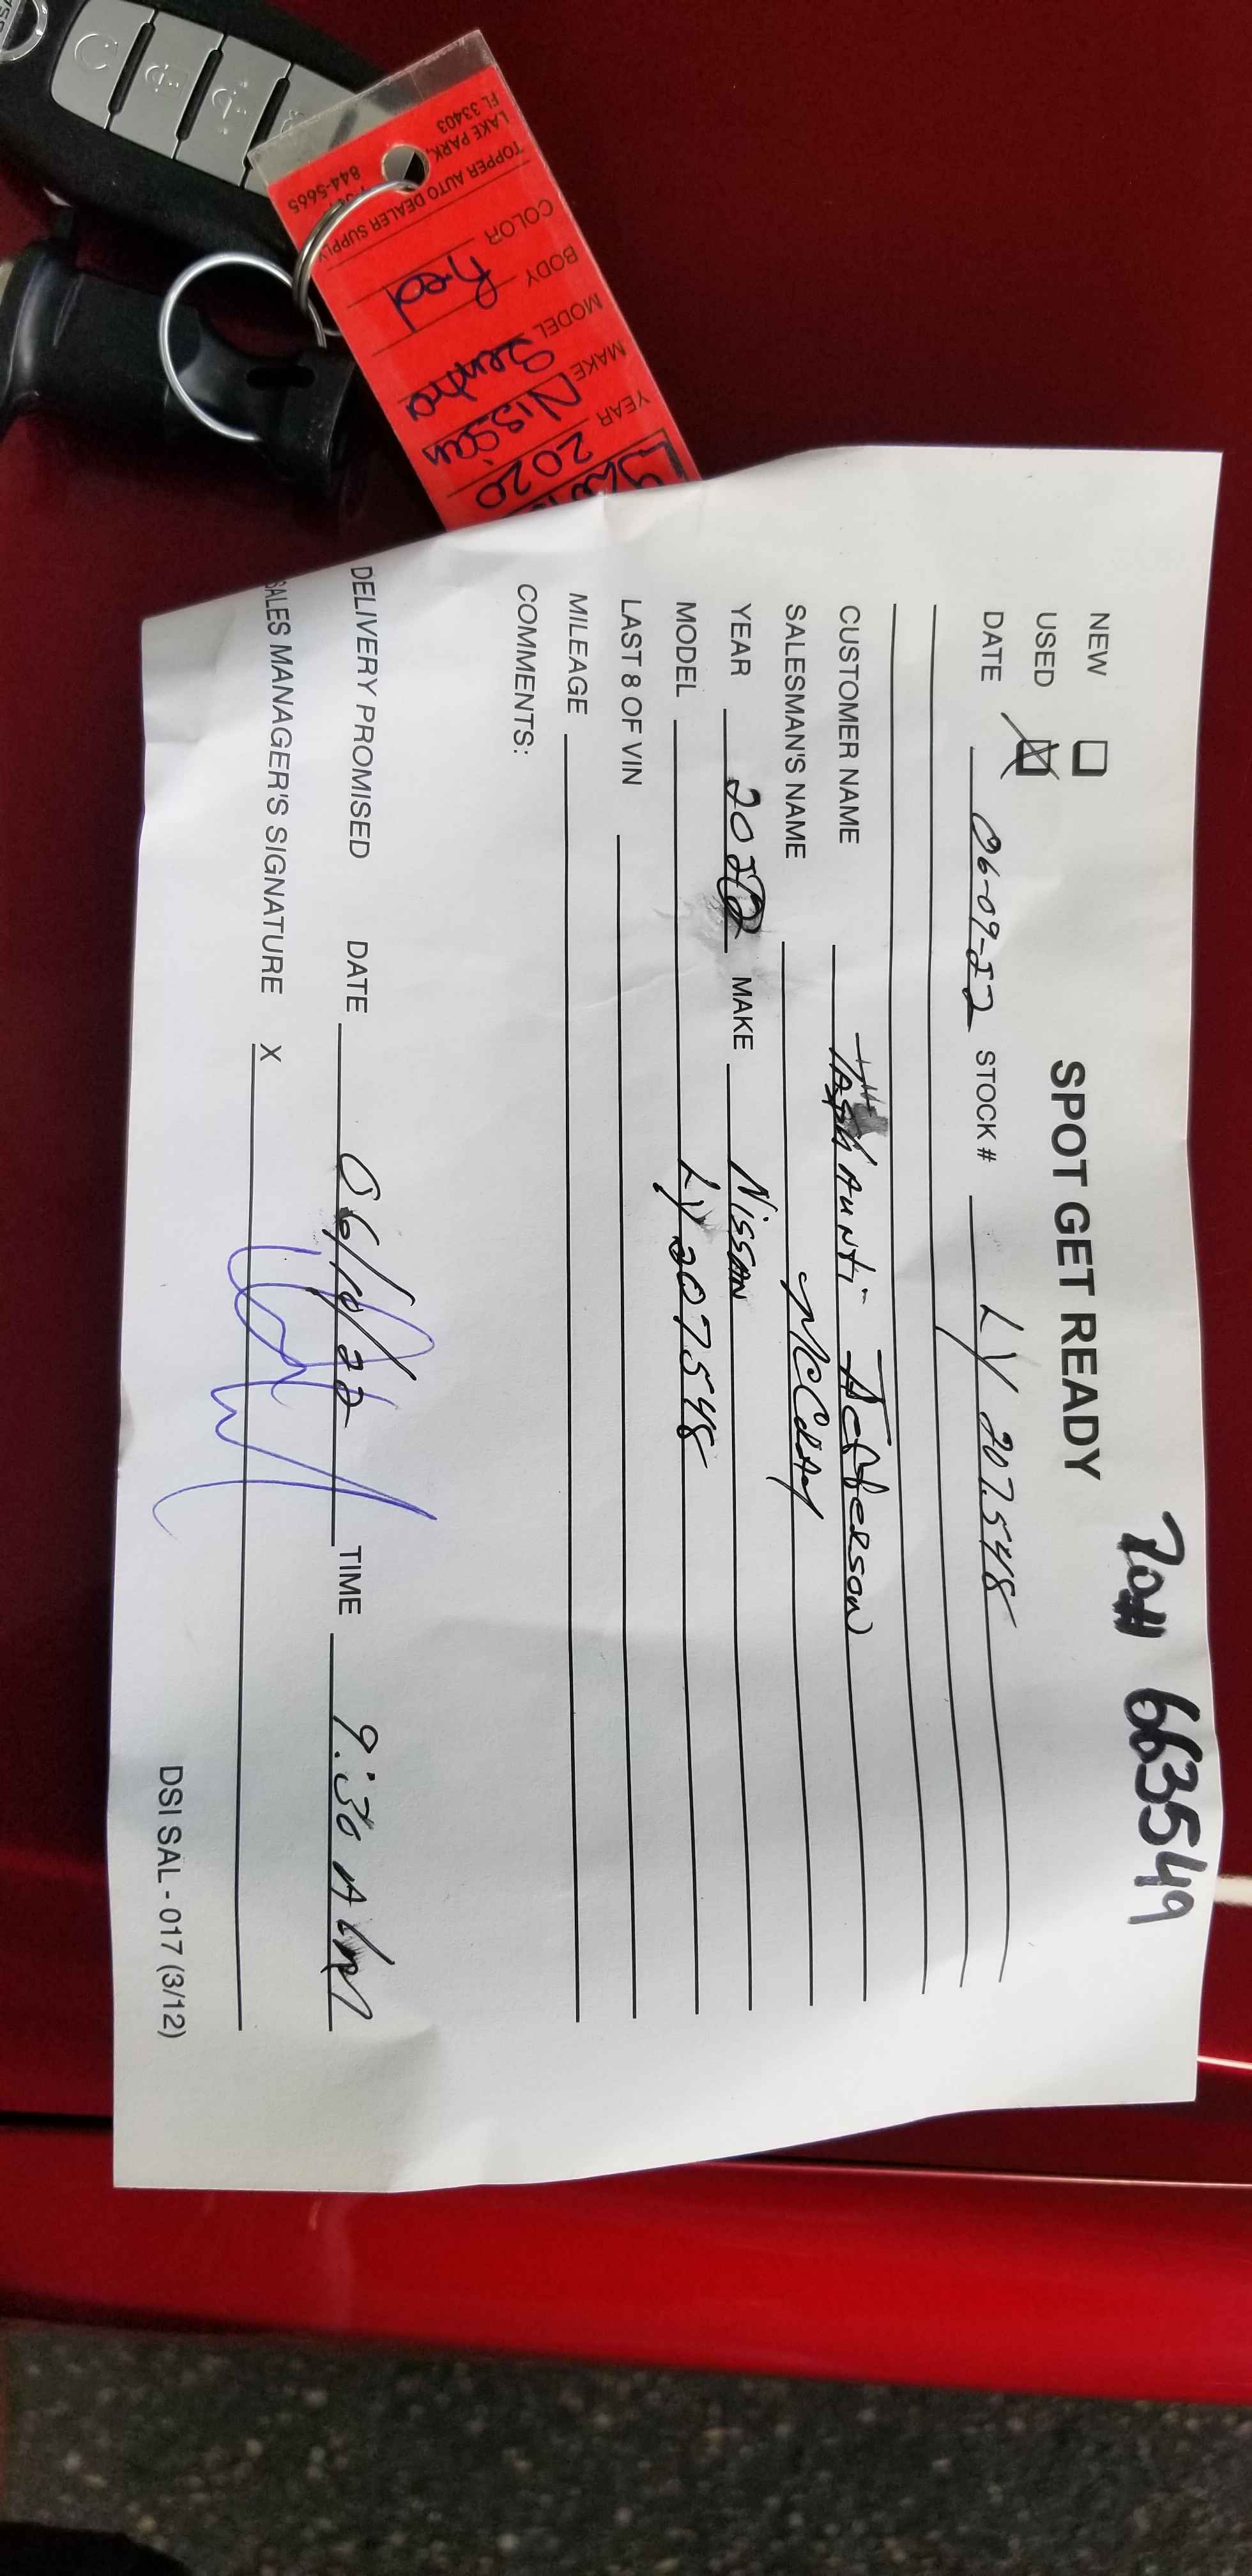 70# 663549
SPOT GET READY
NEW
USED
DATE 06-09-22 STOCK# LY 207548
CUSTOMER NAME Jefferson
SALESMAN'S NAME McCray
YEAR 2020 MAKE Nissan
MODEL LY 207548
LAST 8 OF VIN
MILEAGE
COMMENTS:
DELIVERY PROMISED DATE 06/10/22 TIME 9:30 AM
SALES MANAGER'S SIGNATURE X
DSI SAL - 017 (3/12)
YEAR 2020
MAKE Nissan
MODEL Sentra
BODY
COLOR Red
TOPPER AUTO DEALER SUPPLY
LAKE PARK, FL 33403
844-5665